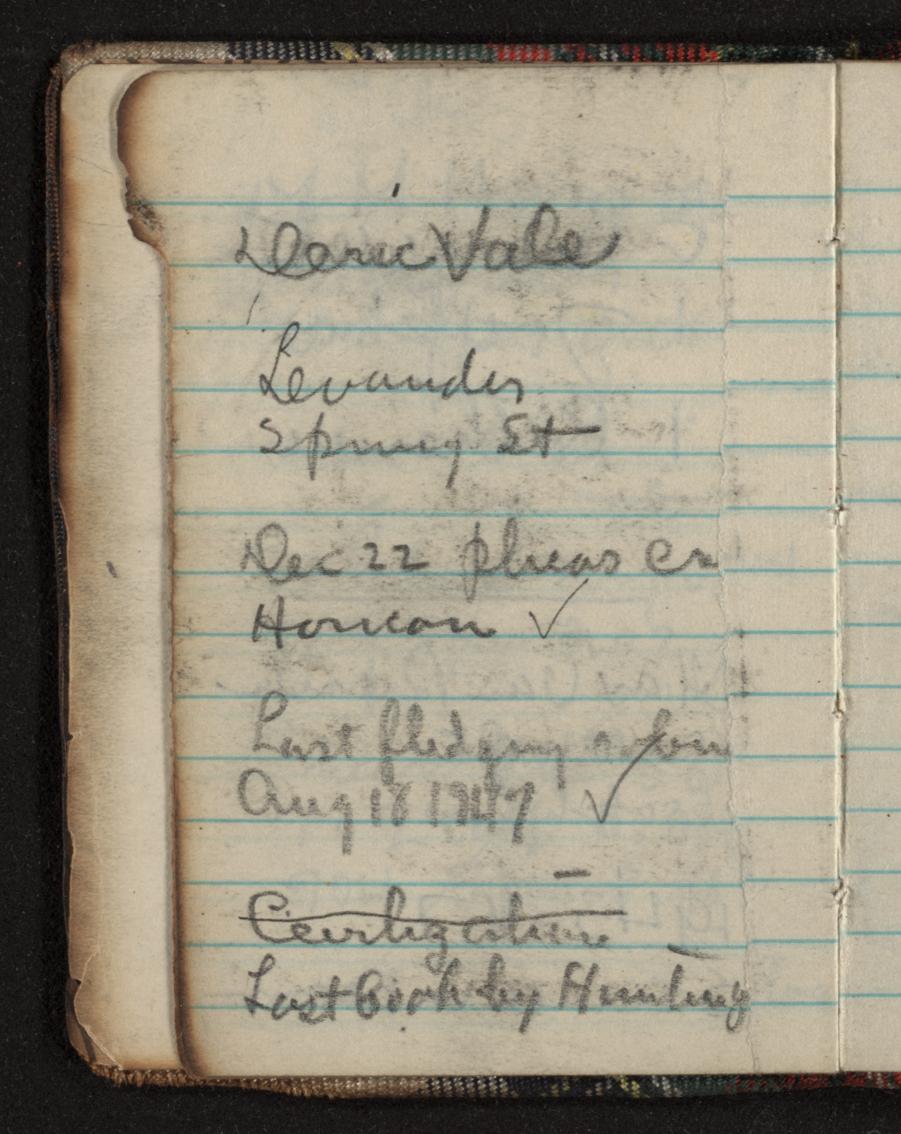 Deric Vale
Levander
Spring St
Dec 22 pheas cr
Horicon ✓
Last fledgling robin
Aug 18 1947 ✓
Civilization
Last Book by Hunting